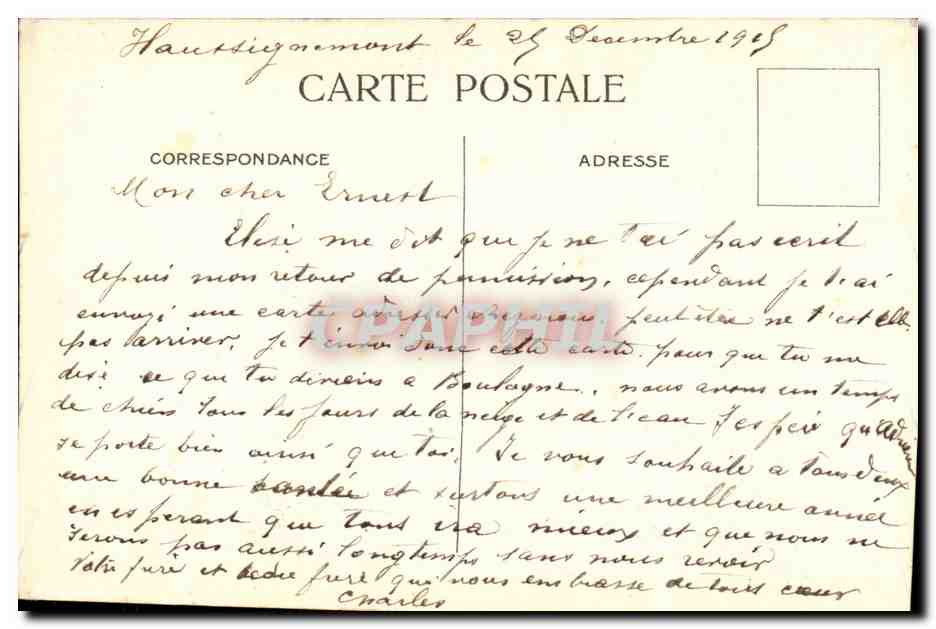 Haussignemont le 25 Decembre 1915
CARTE POSTALE
CORRESPONDANCE
ADRESSE
Mon cher Ernest
Elise me dit que je ne t'ai pas ecrit
depuis mon retour de permission, cependant je t'ai
envoyé une carte peut être ne t'est elle
pas arriver, je t'envoi donc cette carte pour que tu me
dise ce que tu deviens a Boulogne, nous avons un temps
de chien tous les jours de la neige et de l'eau J'espère qu'Adrien
se porte bien ainsi que toi. Je vous souhaite a tous deux
une bonne santée et surtous une meilleure année
en esperant que tous ira mieux et que nous ne
serons pas aussi longtemps sans nous revoir
Votre frère et frère qui vous embrasse de tout coeur
Charles
CPAPHIL